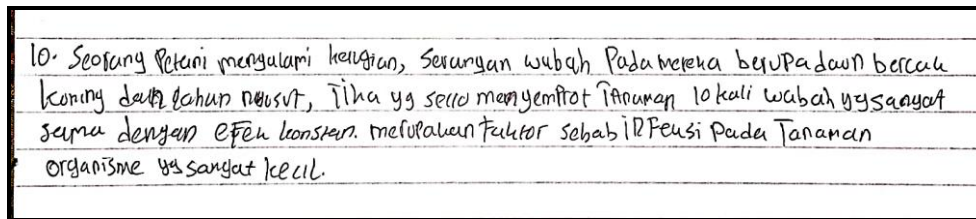 10. Seorang Petani mengalami kerugian, Serangan wabah Pada mereka berupa daun bercak
koning dan lahan nyusut, Jika yg sello menyemptot Tanaman 10 kali wabah yg sangat
sama dengan efek konstan. merupakan Faktor sebab infeksi Pada Tanaman
organisme yg sangat kecil.